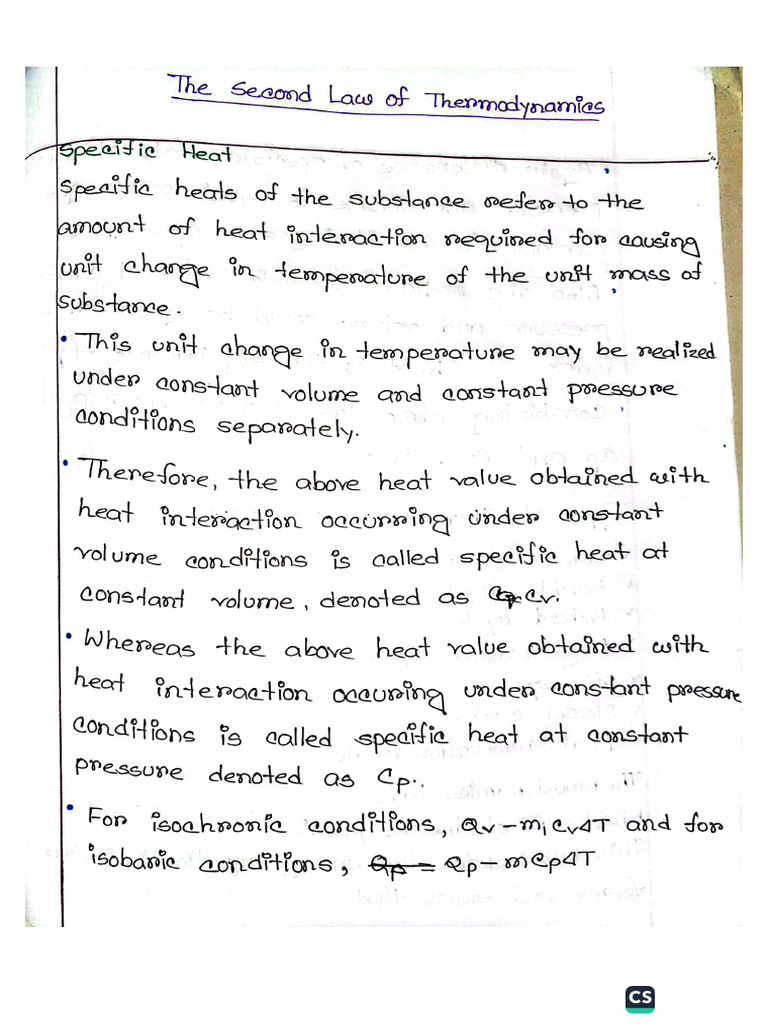 The Second Law of Thermodynamics
Specific Heat
Specific heats of the substance refer to the
amount of heat interaction required for causing
unit change in temperature of the unit mass of
substance.
• This unit change in temperature may be realized
under constant volume and constant pressure
conditions separately.
• Therefore, the above heat value obtained with
heat interaction occurring under constant
volume conditions is called specific heat at
constant volume, denoted as Cv.
• Whereas the above heat value obtained with
heat interaction occuring under constant pressure
conditions is called specific heat at constant
pressure denoted as Cp.
• For isochronic conditions, Qv - m, Cv ΔT and for
isobaric conditions, Qp = Qp - mCpΔT
CS